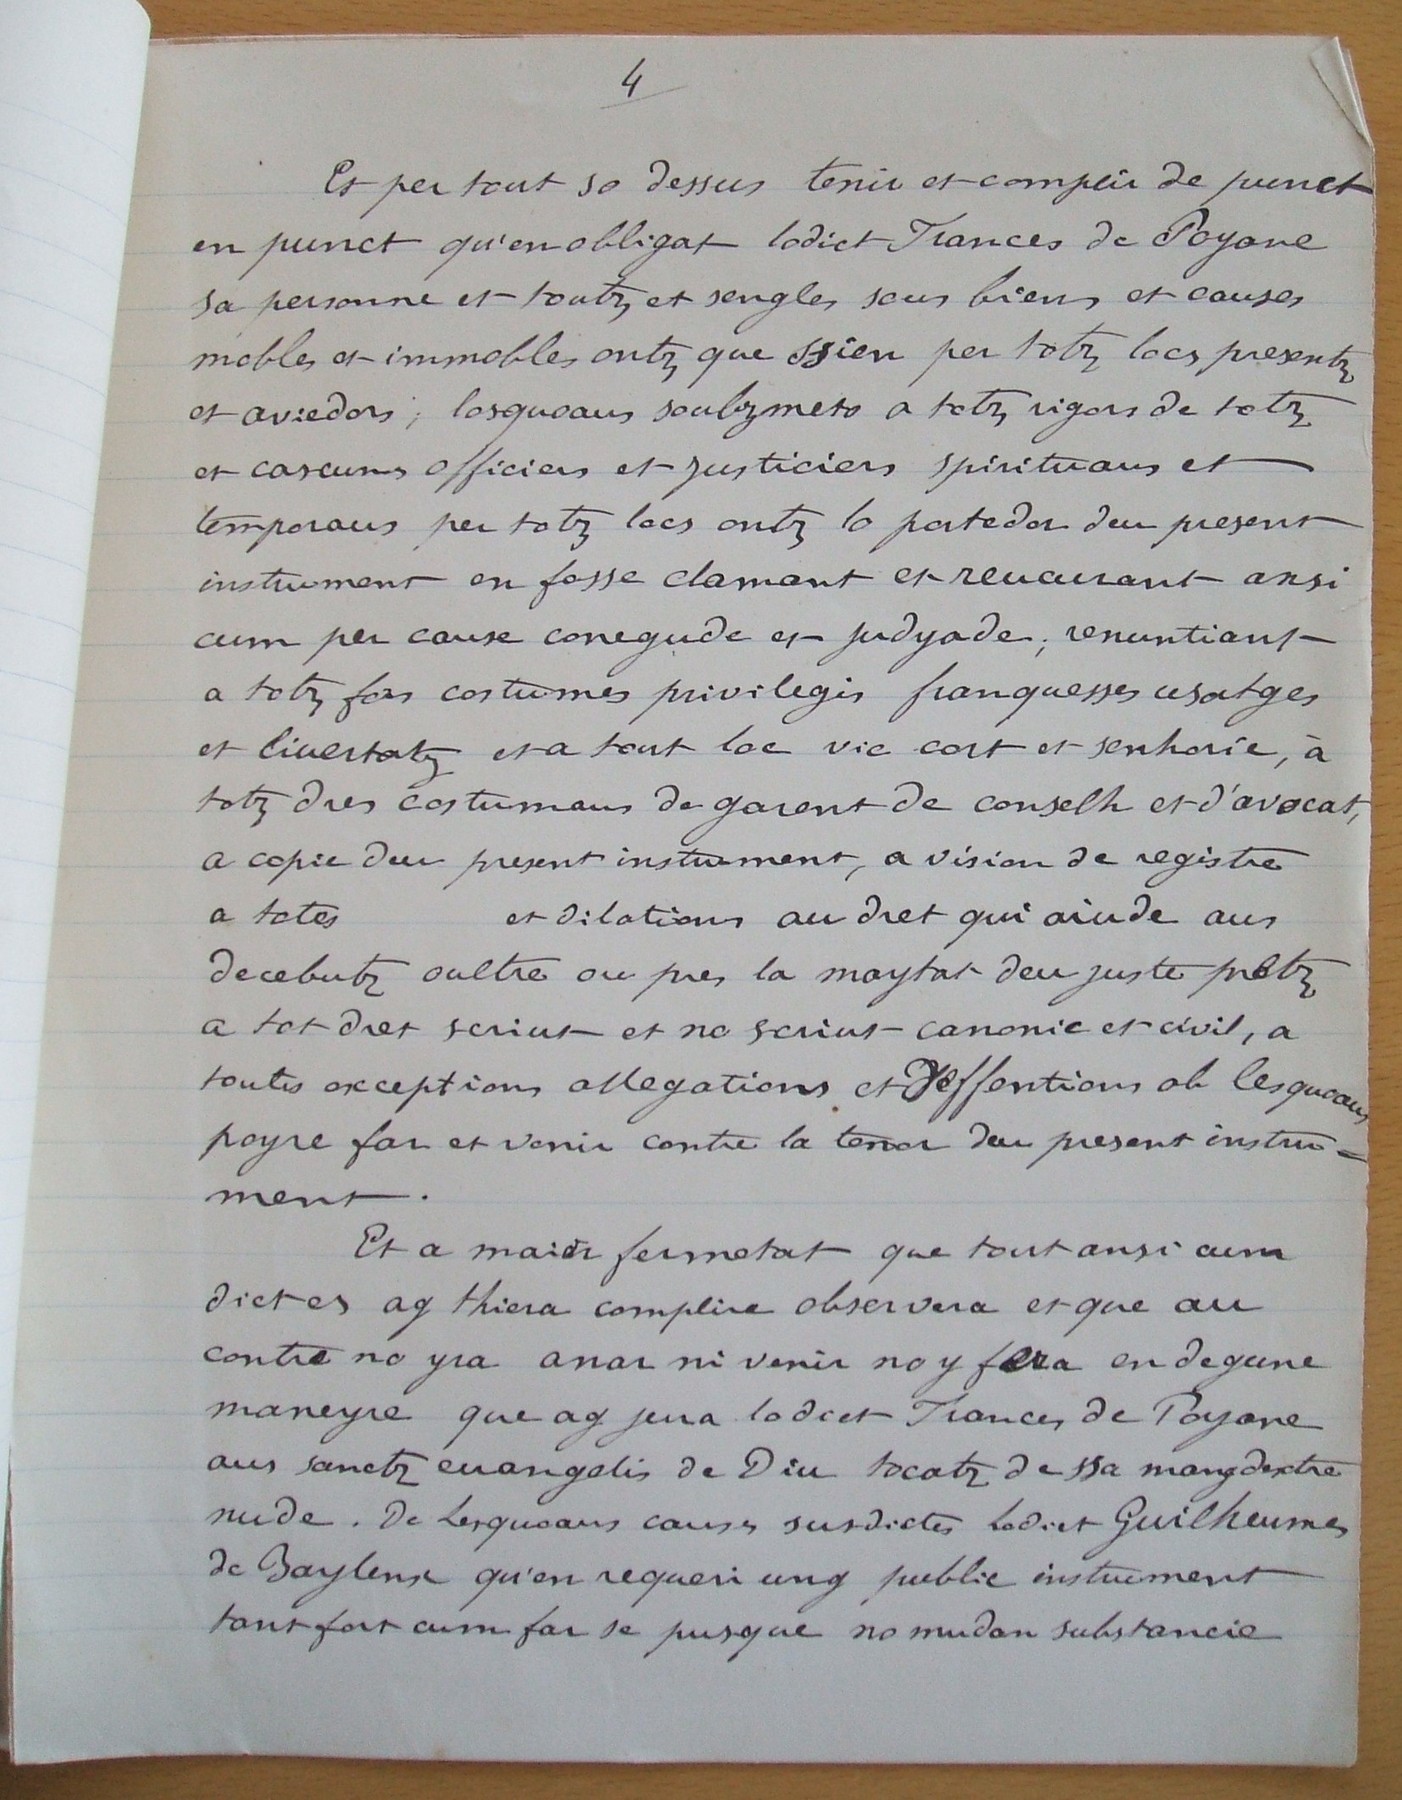 4
Et per tout so dessus tenir et complir de punct
en punct qu'en obligat lodict Frances de Poyane
sa personne et toutz et sengles sous biens et causes
mobles et immobles ontz que ssien per totz locs presentz
et aviedors, losquoaus soubzmeto a totz rigors de totz
et cascuns officiers et justiciers spirituaus et
temporaus per totz locs ontz lo portedor deu present
instrument en fosse clamant et reucurant ansi
cum per cause conegude et judyade, renuntiant
a totz fors costumes privilegis franquesses usatges
et livertatz et a tout loc vic cort et senhorie, à
totz dres costumaus de garent de conselh et d'avocat,
a copie deu present instrument, a vision de registre
a totes et dilations au dret qui aiude aus
decebutz oultre ou pres la maytat deu juste pretz
a tot dret scriut et no scriut canonic et civil, a
toutes exceptions allegations et deffentions ab lesquoaus
poyre far et venir contre la tenor deu present instru=
ment.
Et a maior fermetat que tout ansi cum
dict es ag thiera complire observera et que au
contre no yra anar ni venir no y fera en degune
maneyre que ag jura lodict Frances de Poyane
aus sanctz euangelis de Diu tocatz de ssa mang dextre
nude. De lesquoaus causes susdictes lodict Guilheumes
de Baylenx qu'en requeri ung public instrument
tant fort cum far se pusque no mudan substancie